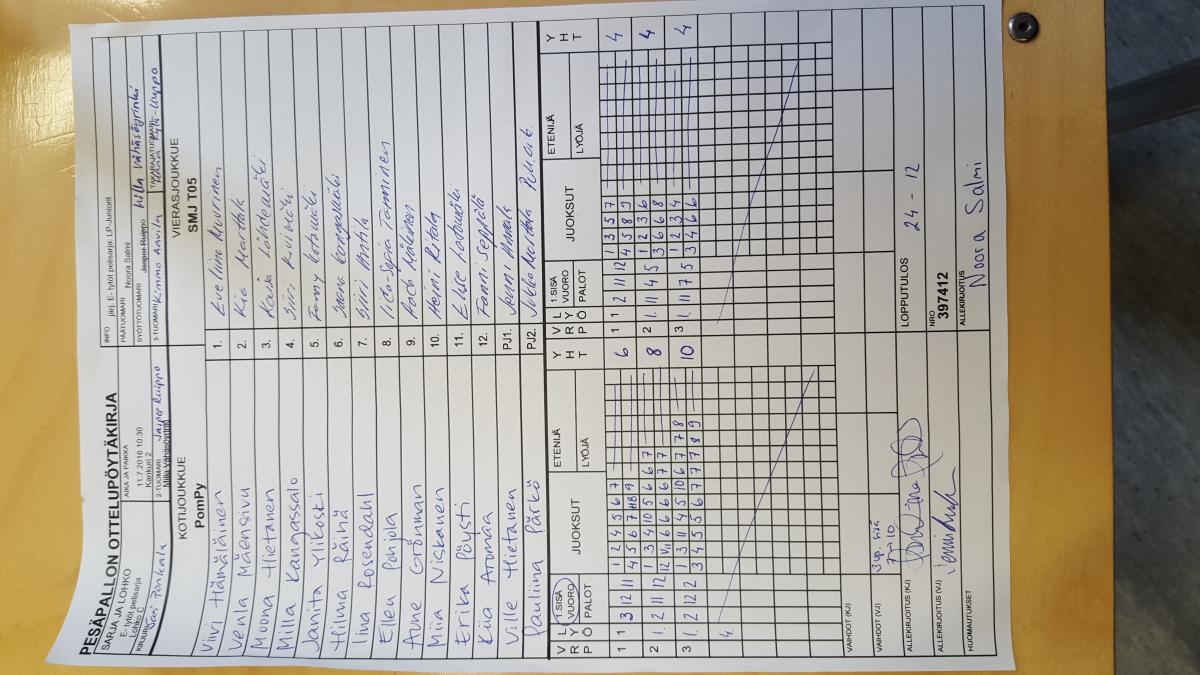 PESÄPALLON OTTELUPÖYTÄKIRJA
SARJA JA LOHKO
E- tytöt pelisarja
Lohko C
AIKA JA PAIKKA
11.7.2016 10:30
Kankuri 2
INFO järj. E- tytöt pelisarja: LP-Juniorit
PÄÄTUOMARI Noora Salmi
SYÖTTÖTUOMARI Jasper Ruippo Milla Vähäsöyrinki
KIRJURI
2-TUOMARI Jasper Ruippo
Milla Vähäsöyrinki
3-TUOMARI Kimmo Anvila
TAKARAJATUOMARI
KOTIJOUKKUE
PomPy
VIERASJOUKKUE
SMJ T05
Viivi Hämäläinen 1. Eveliina Muurinen
Venla Mäensivu 2. Kia Marttala
Moona Hietanen 3. Kaisa Lähteenmäki
Milla Kangassalo 4. Siiri Kivimäki
Janita Ylikoski 5. Kotamäki
Hilma Räihä 6.
Iina Rosendahl 7. Siiri Anttila
Ellen Pohjola 8. Tamminen
Anne Grönman 9.
Miia Niskanen 10. Heini Ritala
Erika Pöysti 11. Else
Kiia Aromaa 12. Fanni Seppälä
Ville Hietanen PJ1. Jenni
Pauliina Pärkö PJ2.
V R P L Y Ö 1.SISÄ VUORO PALOT JUOKSUT ETENIJÄ LYÖJÄ Y H T V R P L Y Ö 1.SISÄ VUORO PALOT JUOKSUT ETENIJÄ LYÖJÄ Y H T
1 1 3 12 11 1 2 4 5 6 7 6 1 1 2 11 12 1 3 5 7 4
4 5 6 7 9 4 5 8 9
2 1. 2 11 12 1 3 4 10 5 6 6 7 8 2 1. 11 4 5 1 2 3 6 4
12 6 6 6 7 7 3 6 6 8
3 1. 2 12 12 1 3 11 4 5 10 6 7 7 8 10 3 1. 11 7 5 1 2 3 4 4
3 4 5 5 6 7 7 7 8 9 3 4 6 6
4.
VAIHDOT (KJ)
VAIHDOT (VJ) 3 vp. sisä
ALLEKIRJOITUS (KJ)
LOPPUTULOS 24 - 12
ALLEKIRJOITUS (VJ)
NRO
397412
HUOMAUTUKSET
ALLEKIRJOITUS
Noora Salmi